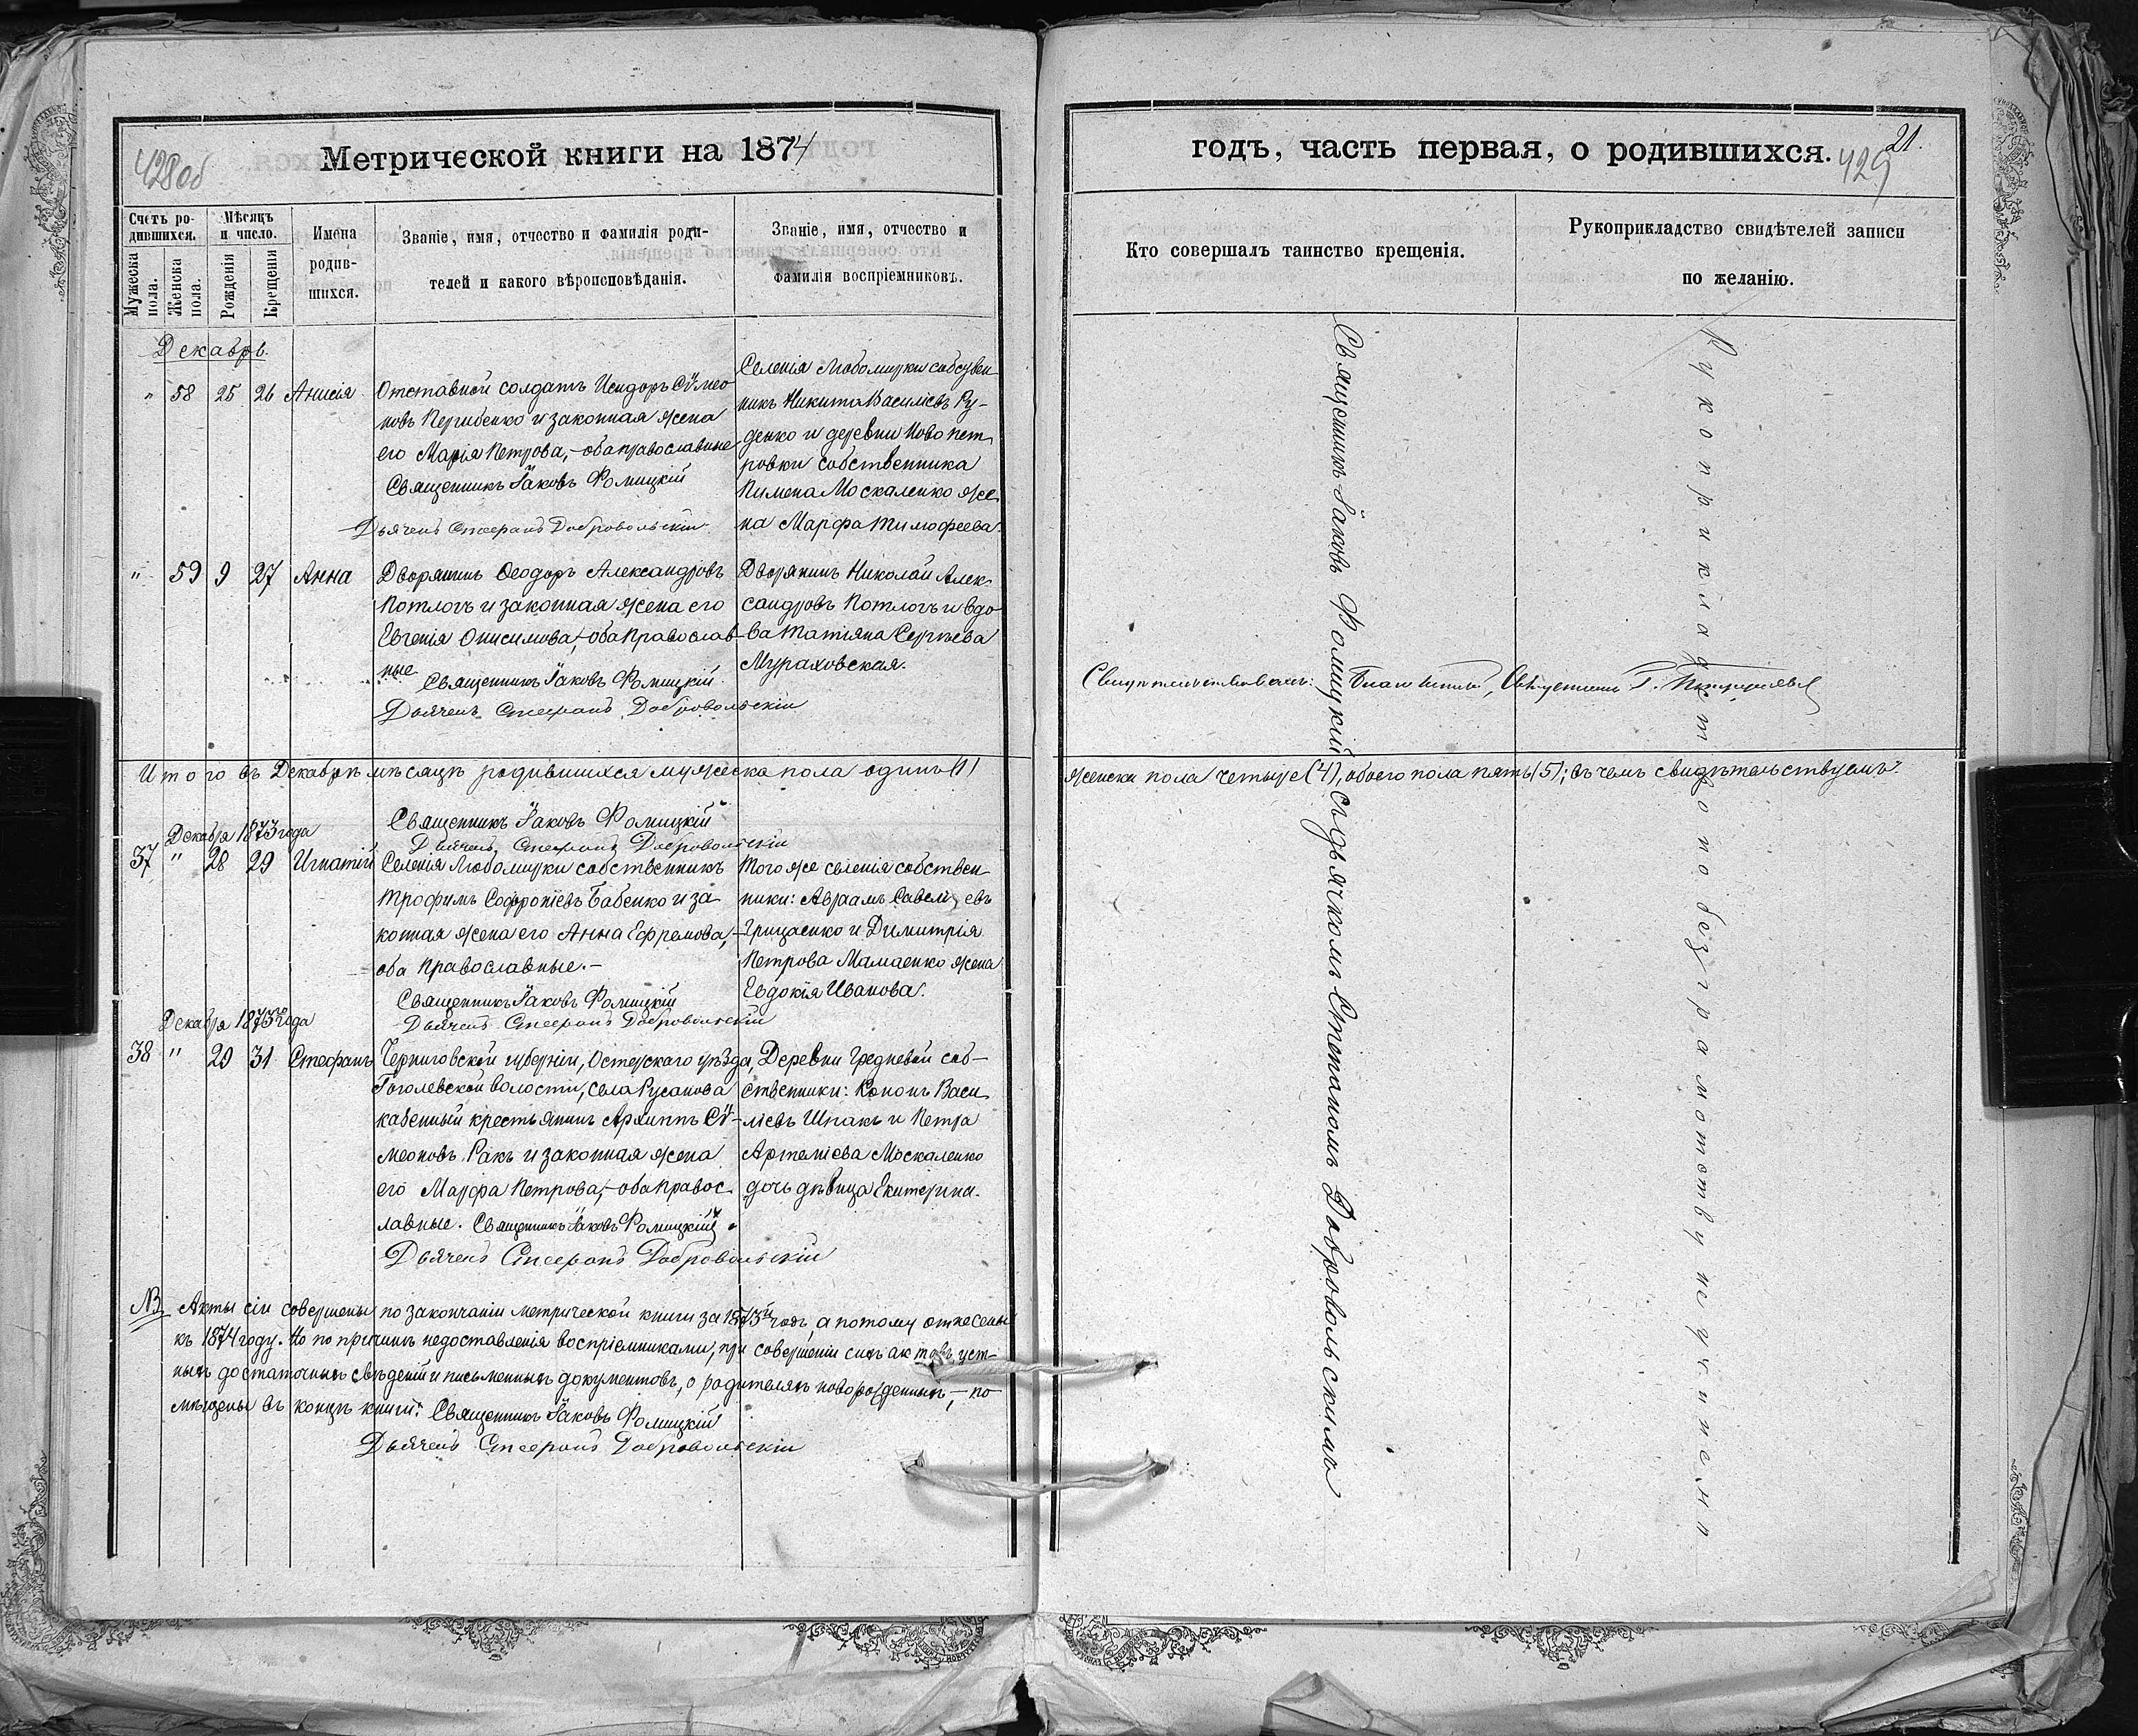 428об
Метрической книги на 1874
Счетъ ро-
дившихся.
Мѣсяцъ
и число.
Мужеска
пола.
Женска
пола.
Рожденія
Крещенія
Имена
родив-
шихся.
Званіе, имя, отчество и фамилія роди-
телей и какого вѣроисповѣданія.
Званіе, имя, отчество и
фамилія воспріемниковъ.
Декабрь.
" 58 25 26 Анисія
Отставной солдатъ Исидоръ Сѵмео-
новъ Перибенко и законная жена
его Марія Петрова, - оба православные
Священникъ Іаковъ Фомицкій
Дьячекъ Стефанъ Добровольскій
Селенія Любомирки собствен-
никъ Никита Василіевъ Ру-
денко и деревни Новопет-
ровки собственника
Пимена Москаленко же-
на Марфа Тимофеева.
" 59 9 27 Анна
Дворянинъ Ѳеодоръ Александровъ
Потлогъ и законная жена его
Евгенія Онисимова, - оба православ-
ные Священникъ Іаковъ Фомицкій
Дьячекъ Стефанъ Добровольскій
Дворянинъ Николай Алек-
сандровъ Потлогъ и вдо-
ва Татіяна Сергѣева
Мураховская.
Итого въ Декабрѣ мѣсяцѣ родившихся мужеска пола одинъ (1)
Священникъ Іаковъ Фомицкій
Дьячекъ Стефанъ Добровольскій
Декабря 1873 года
37 " 28 29 Игнатій
Селенія Любомирки собственникъ
Трофимъ Софроніевъ Бабенко и за-
конная жена его Анна Ефремова, -
оба православные. -
Священникъ Іаковъ Фомицкій
Дьячекъ Стефанъ Добровольскій
Того же селенія собствен-
ники: Авраамъ Савельевъ
Грицаенко и Димитрія
Петрова Мамаенко жена
Евдокія Иванова.
Декабря 1873 года
38 " 29 31 Стефанъ
Черниговской губерніи, Остерскаго уѣзда,
Гоголевской волости, села Русанова
казенный крестьянинъ Архиппъ Сѵ-
меоновъ Ракъ и законная жена
его Марфа Петрова, - оба правос-
лавные. Священникъ Іаковъ Фомицкій
Дьячекъ Стефанъ Добровольскій
Деревни Гредневой соб-
ственники: Кононъ Васи-
ліевъ Шпакъ и Петра
Артеміева Москаленко
дочь дѣвица Екатерина.
NB Акты сіи совершены по закончаніи метрической книги за 1873й годъ, а потому отнесены
къ 1874 году. Но по причинѣ недоставленія воспріемниками, при совершеніи сихъ актовъ, уст-
ныхъ достаточныхъ свѣденій и письменныхъ документовъ, о родителяхъ новорожденныхъ, - по-
мѣщены въ концѣ книги. Священникъ Іаковъ Фомицкій
Дьячекъ Стефанъ Добровольскій
годъ, часть первая, о родившихся.
21.
429
Кто совершалъ таинство крещенія.
Рукоприкладство свидѣтелей записи
по желанію.
Священникъ Іаковъ Фомицкій съ дьячкомъ Стефаномъ Добровольскимъ
Рукоприкладство безграмотству не учинено
Свидѣтельствовалъ: Благочинный, Священникъ Г.
женска пола четыре (4), обоего пола пять (5); въ чемъ свидѣтельствуемъ.